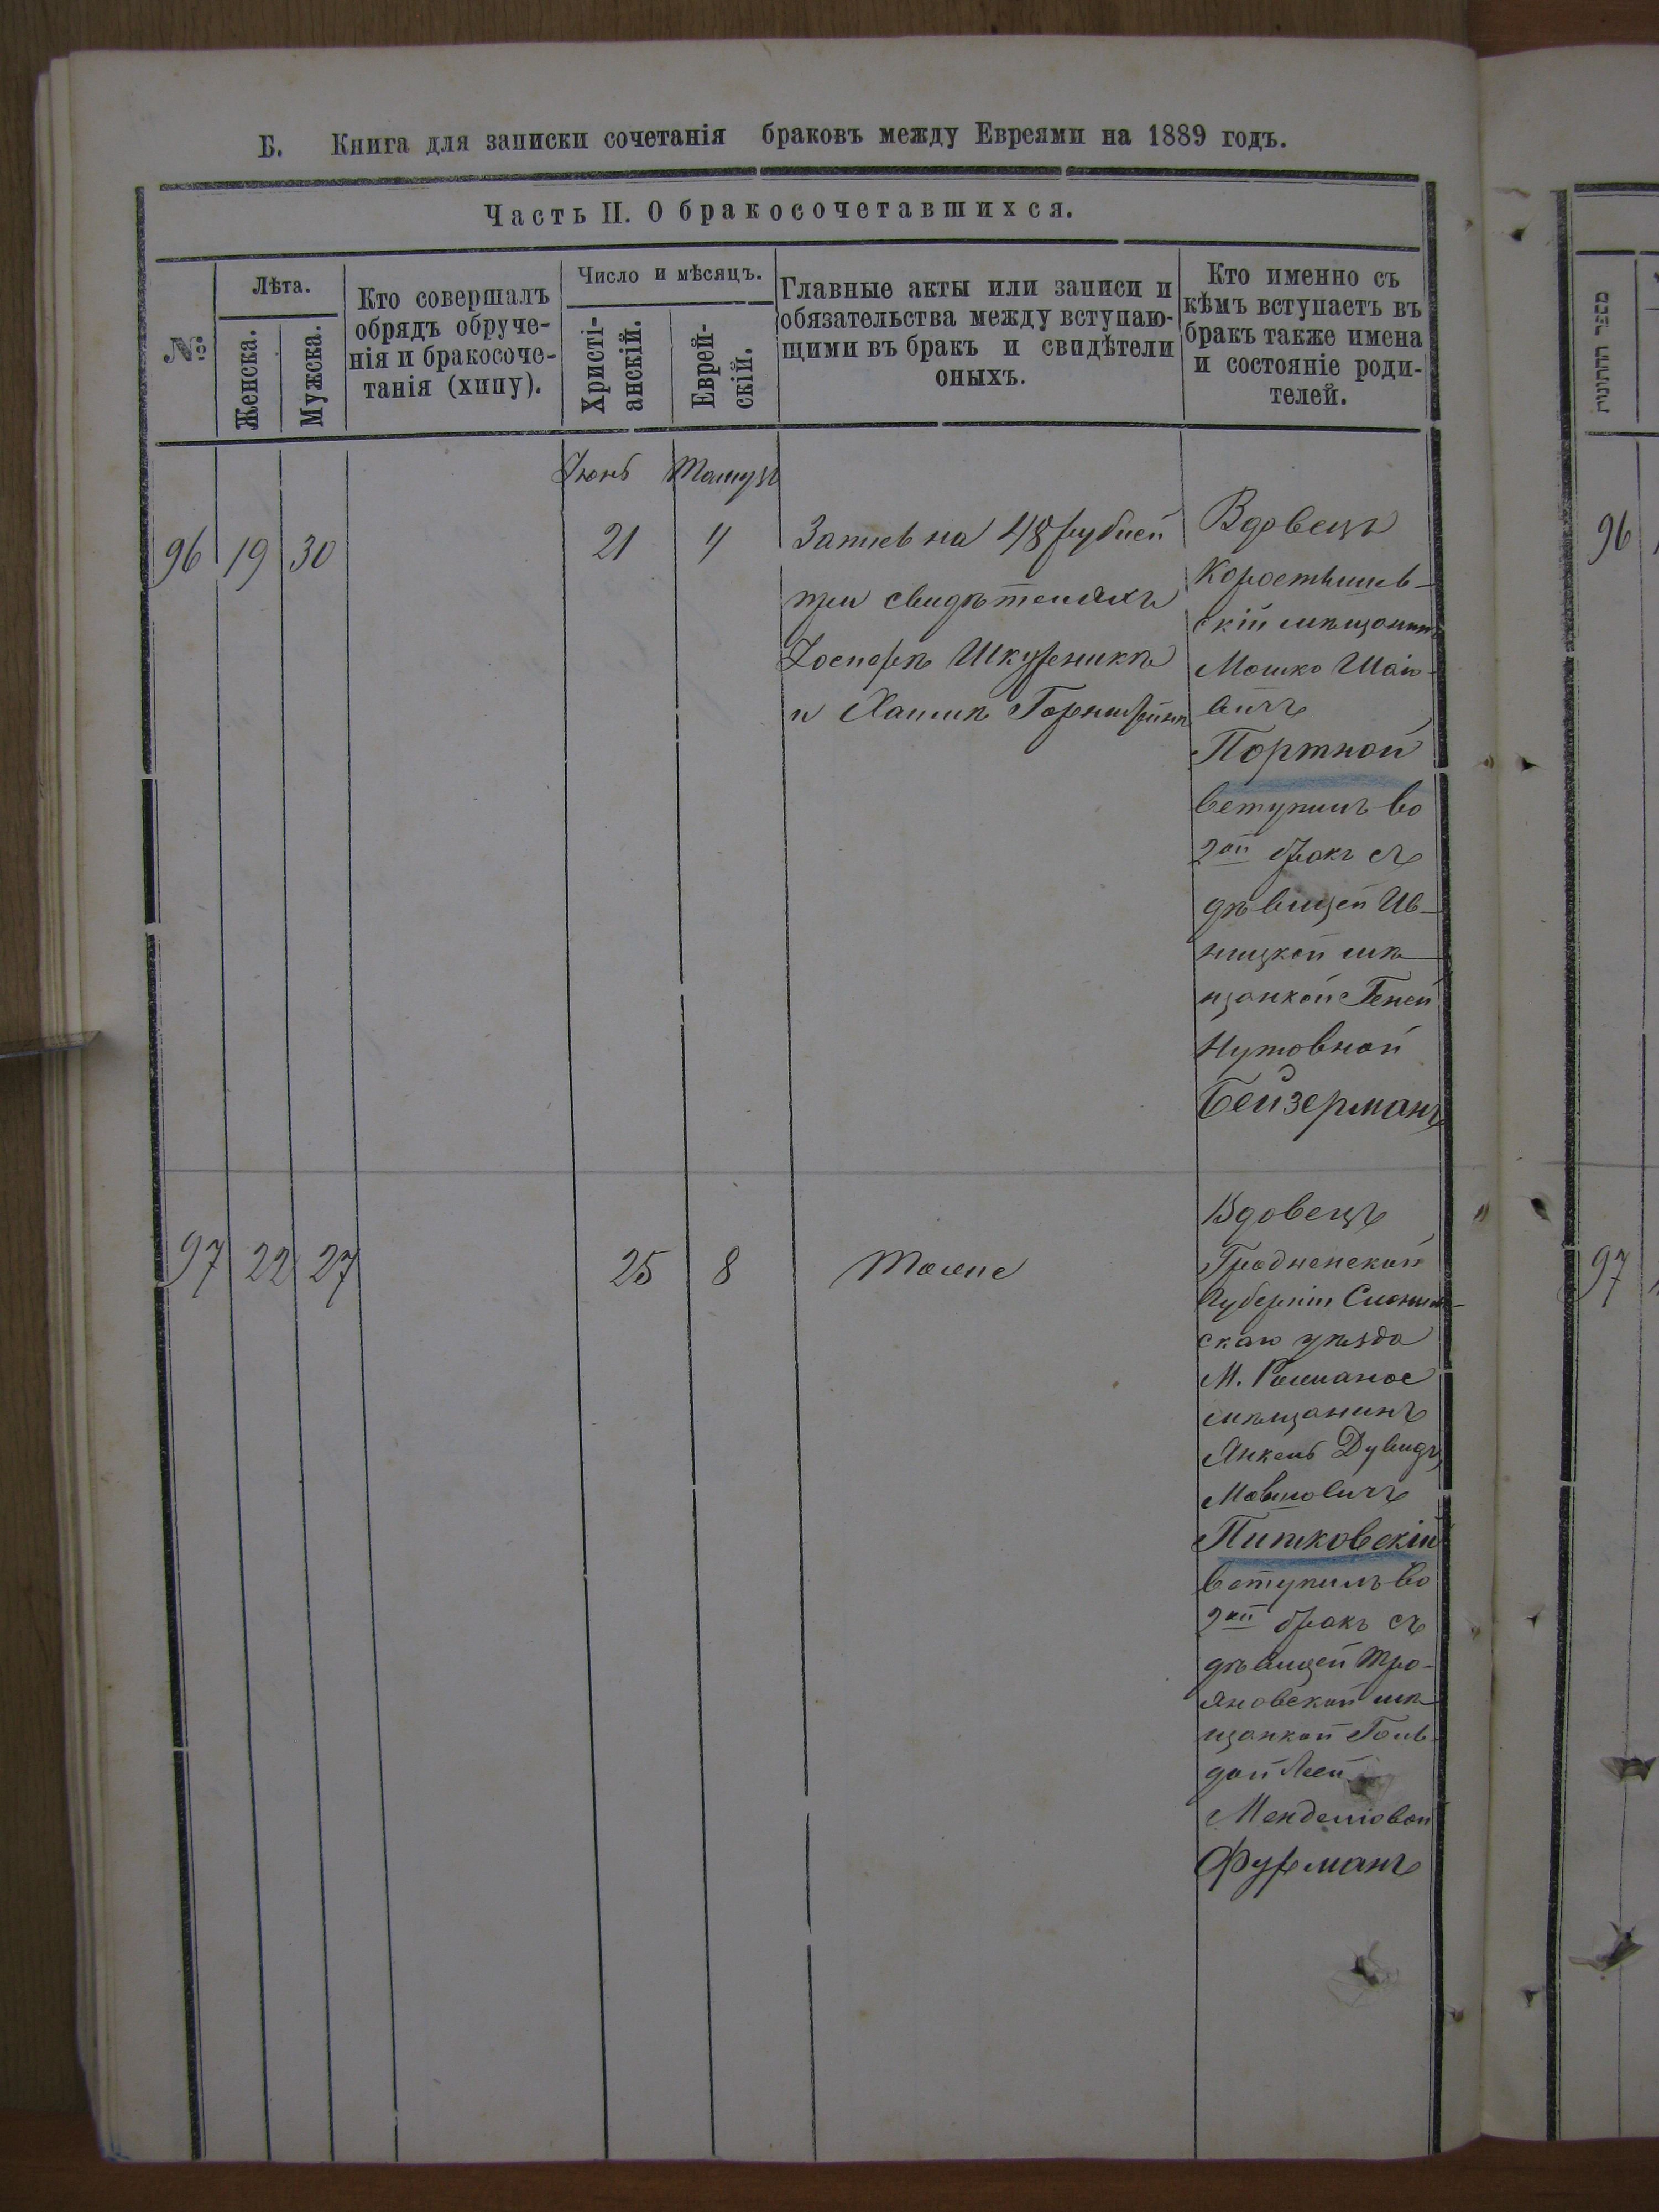 Б. Книга для записки сочетанія браковъ между Евреями на 1889 годъ.
Часть II. О бракосочетавшихся.
№
Лѣта.
Женска.
Мужска.
Кто совершалъ
обрядъ обруче-
нія и бракосоче-
танія (хипу).
Число и мѣсяцъ.
Христі-
анскій.
Еврей-
скій.
Главные акты или записи и
обязательства между вступаю-
щими въ бракъ и свидѣтели
оныхъ.
Кто именно съ
кѣмъ вступаетъ въ
бракъ также имена
и состояніе роди-
телей.
Іюнь Тамузъ
96 19 30 21 4
на 48 рублей
при свидѣтеляхъ
Іосперѣ Шкурникѣ
и Хаимѣ
Вдовецъ
Коростышев-
скій мѣщанинъ
Мошко Шаіо-
вичъ
Портной
вступилъ во
2ой бракъ съ
дѣвицей Ив-
ницкой мѣ-
щанкой Геней
Нутовной
Бейзерманъ
97 22 27 25 8 Тоже
Вдовецъ
Гродненской
Губерніи Слоним-
скаго уѣзда
М.
мѣщанинъ
Янкель Дувидъ
Мовшовичъ
Питковскій
вступилъ во
2ой бракъ съ
дѣвицей Тро-
яновской мѣ-
щанкой Голь-
дой Леей
Менделіовой
Фурманъ
מספר החתונות
96
97